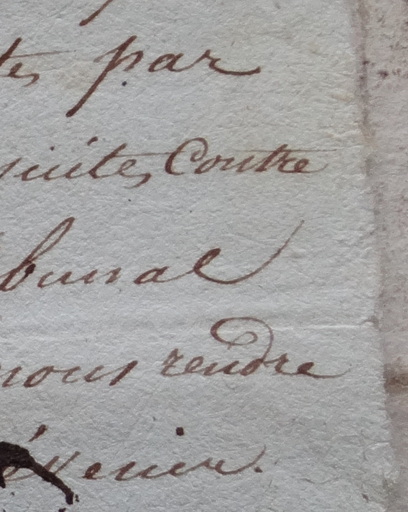 par
suites contre
bunal
nous rendre
évenir.